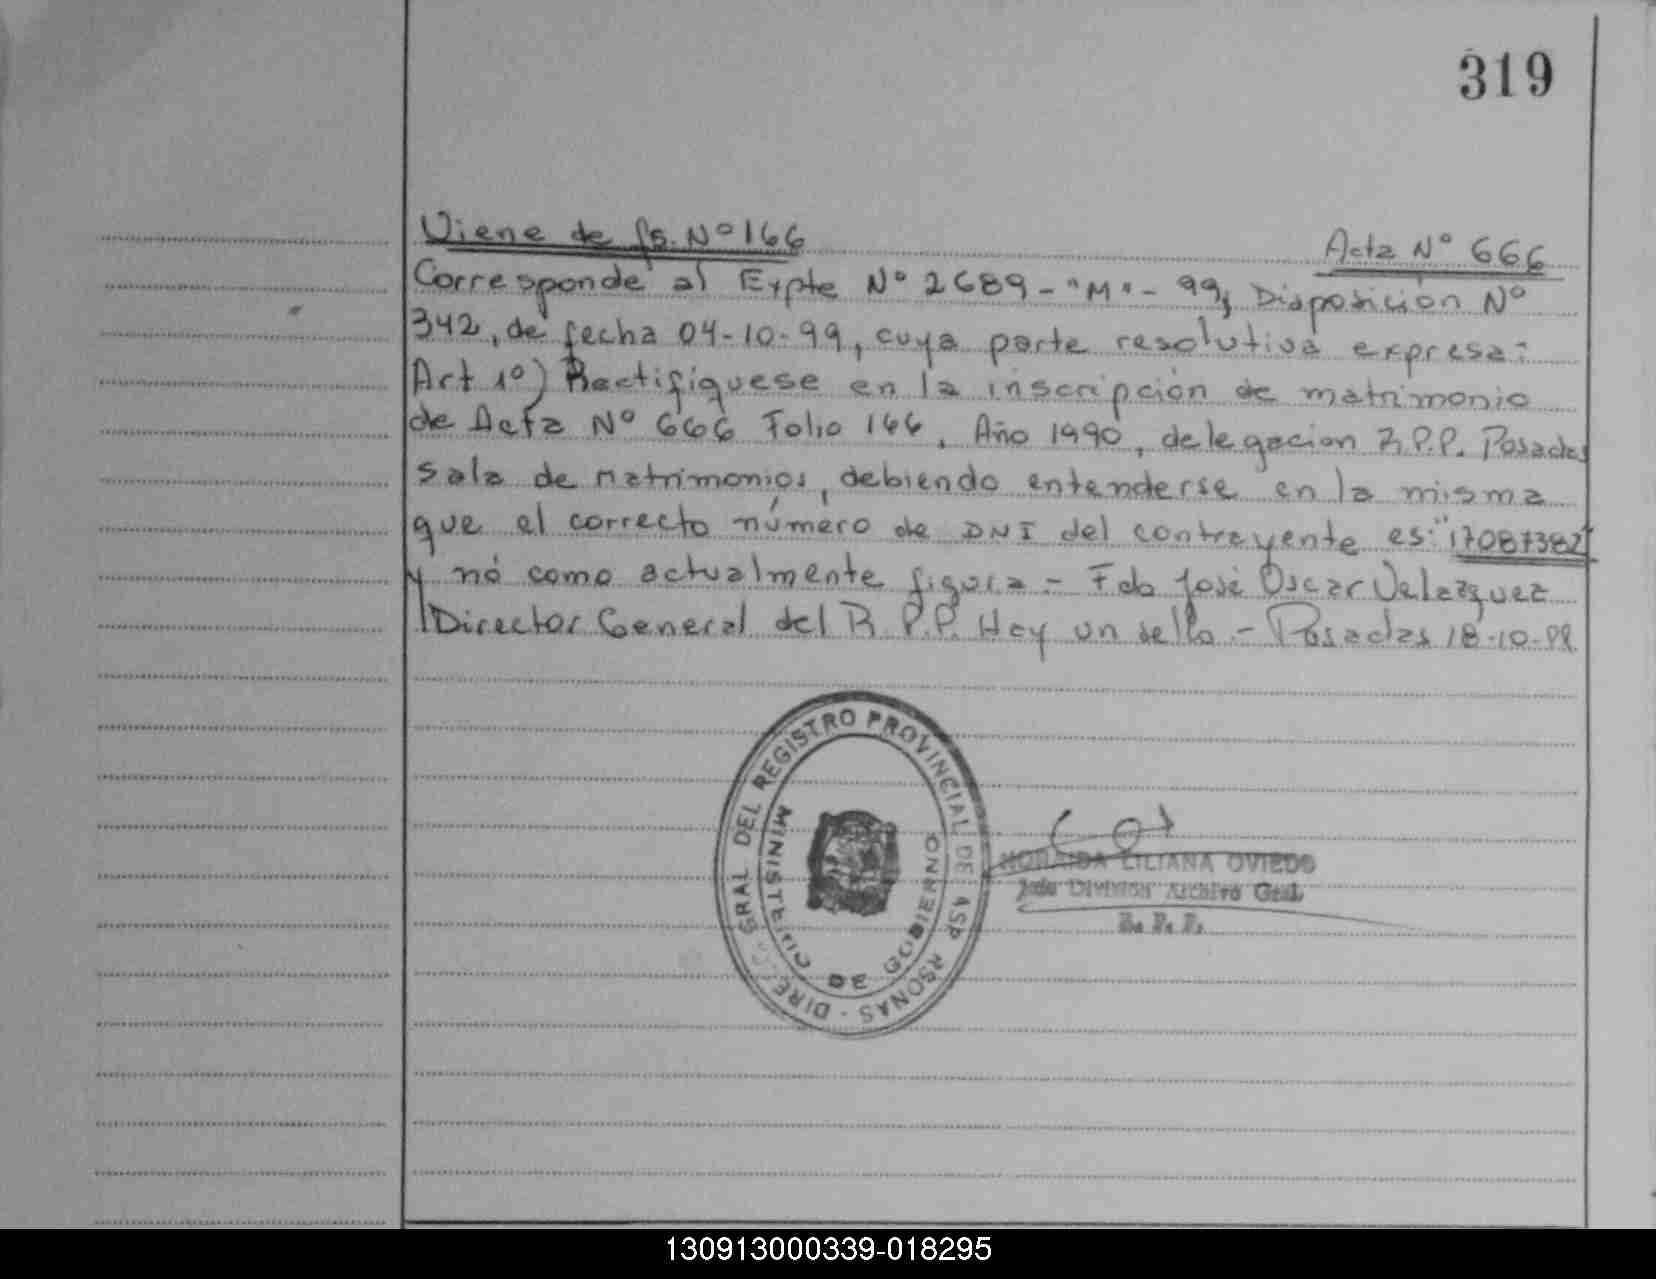 319
Viene de fs. Nº 166
Acta Nº 666
Corresponde al Expte Nº 2689-"M"-99, Disposición Nº
342, de fecha 04-10-99, cuya parte resolutiva expresa:
Art 1º) Rectifiquese en la inscripción de matrimonio
de Acta Nº 666 Folio 166, Año 1990, delegacion R.P.P. Posadas
sala de matrimonios, debiendo entenderse en la misma
que el correcto número de DNI del contrayente es: "17087382"
y nó como actualmente figura.- Fdo José Oscar Velazquez
Director General del R.P.P. Hay un sello.- Posadas 18-10-99
GRAL DEL REGISTRO PROVINCIAL DE
RSONAS - DIREC
MINISTERIO DE GOBIERNO
NORAIDA LILIANA OVIEDO
Jefe Division Archivo Gral.
R. P. P.
130913000339-018295